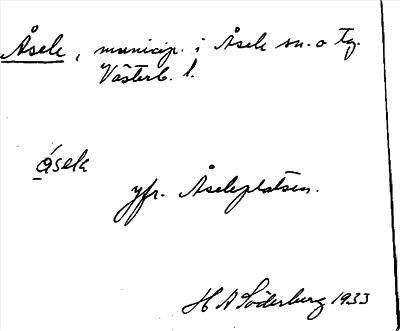 Åsele, municip. i Åsele sn. o tg.
Västerb. l.
åsele
jfr. Åseleplatsen.
H A Söderberg 1933